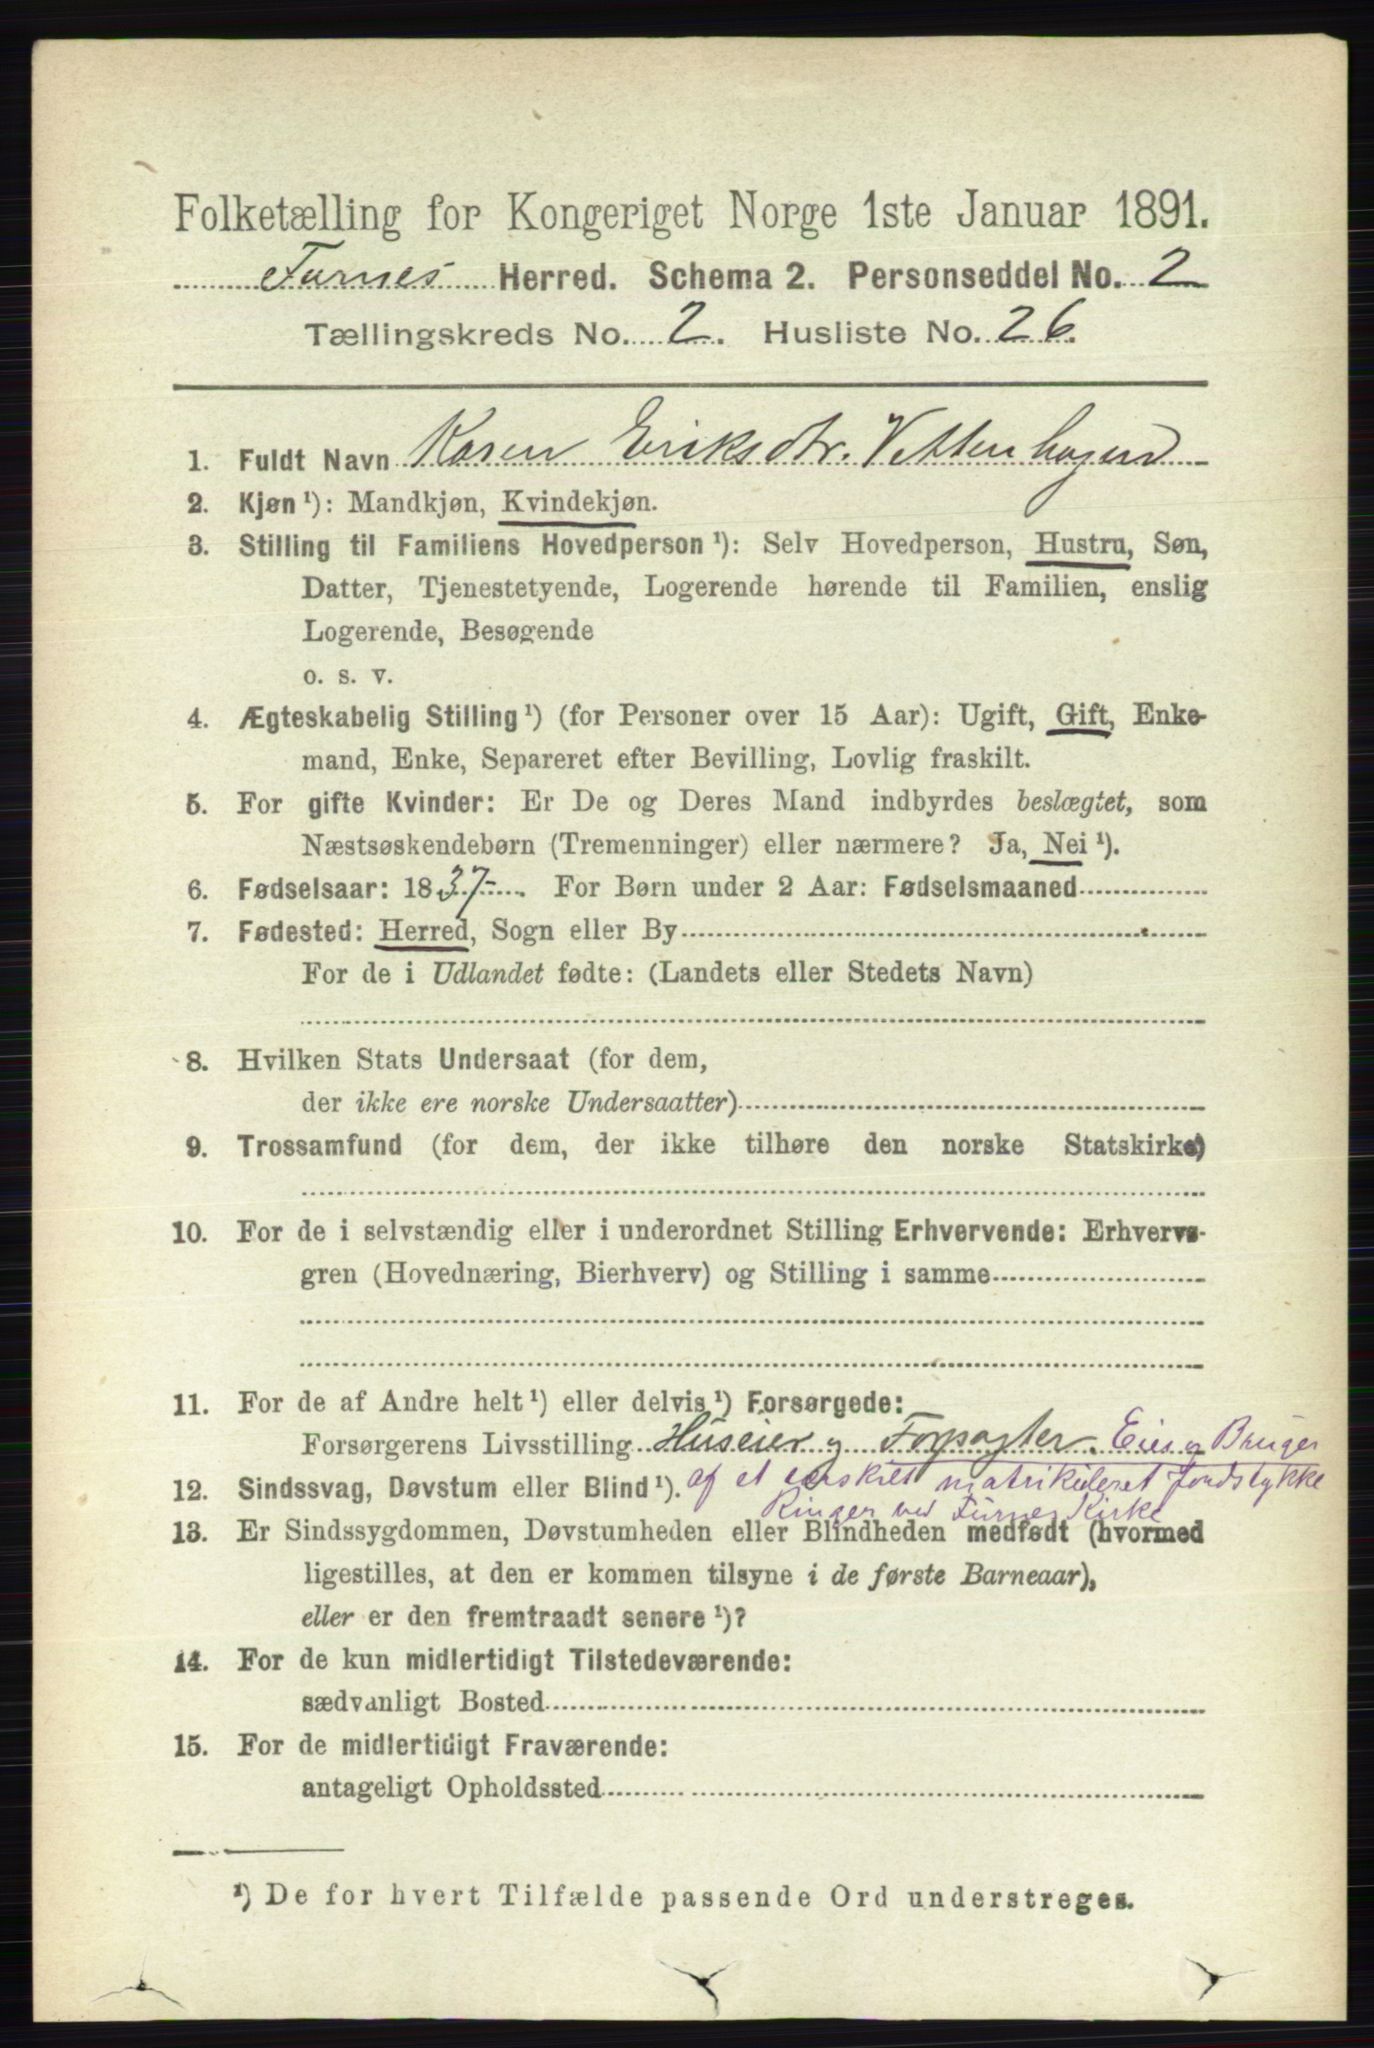 Folketælling for Kongeriget Norge 1ste Januar 1891.
Furnes Herred. Schema 2. Personseddel No. 2
Tællingskreds No. 2. Husliste No. 26.
1. Fuldt Navn Karen Eriksdtr. Vettenhagen
2. Kjøn ¹): Mandkjøn, Kvindekjøn.
3. Stilling til Familiens Hovedperson ¹): Selv Hovedperson, Hustru, Søn,
Datter, Tjenestetyende, Logerende hørende til Familien, enslig
Logerende, Besøgende
o. s. v.
4. Ægteskabelig Stilling ¹) (for Personer over 15 Aar): Ugift, Gift, Enke-
mand, Enke, Separeret efter Bevilling, Lovlig fraskilt.
5. For gifte Kvinder: Er De og Deres Mand indbyrdes beslægtet, som
Næstsøskendebørn (Tremenninger) eller nærmere? Ja, Nei ¹).
6. Fødselsaar: 1837. For Børn under 2 Aar: Fødselsmaaned
7. Fødested: Herred, Sogn eller By
For de i Udlandet fødte: (Landets eller Stedets Navn)
8. Hvilken Stats Undersaat (for dem,
der ikke ere norske Undersaatter)
9. Trossamfund (for dem, der ikke tilhøre den norske Statskirke)
10. For de i selvstændig eller i underordnet Stilling Erhvervende: Erhvervs-
gren (Hovednæring, Bierhverv) og Stilling i samme
11. For de af Andre helt ¹) eller delvis ¹) Forsørgede:
Forsørgerens Livsstilling Huseier og Forpagter. Eier og Bruger
12. Sindssvag, Døvstum eller Blind ¹). af et særskilt matrikuleret Jordstykke
Ringer ved Furnes Kirke
13. Er Sindssygdommen, Døvstumheden eller Blindheden medfødt (hvormed
ligestilles, at den er kommen tilsyne i de første Barneaar),
eller er den fremtraadt senere ¹)?
14. For de kun midlertidigt Tilstedeværende:
sædvanligt Bosted
15. For de midlertidigt Fraværende:
antageligt Opholdssted
¹) De for hvert Tilfælde passende Ord understreges.